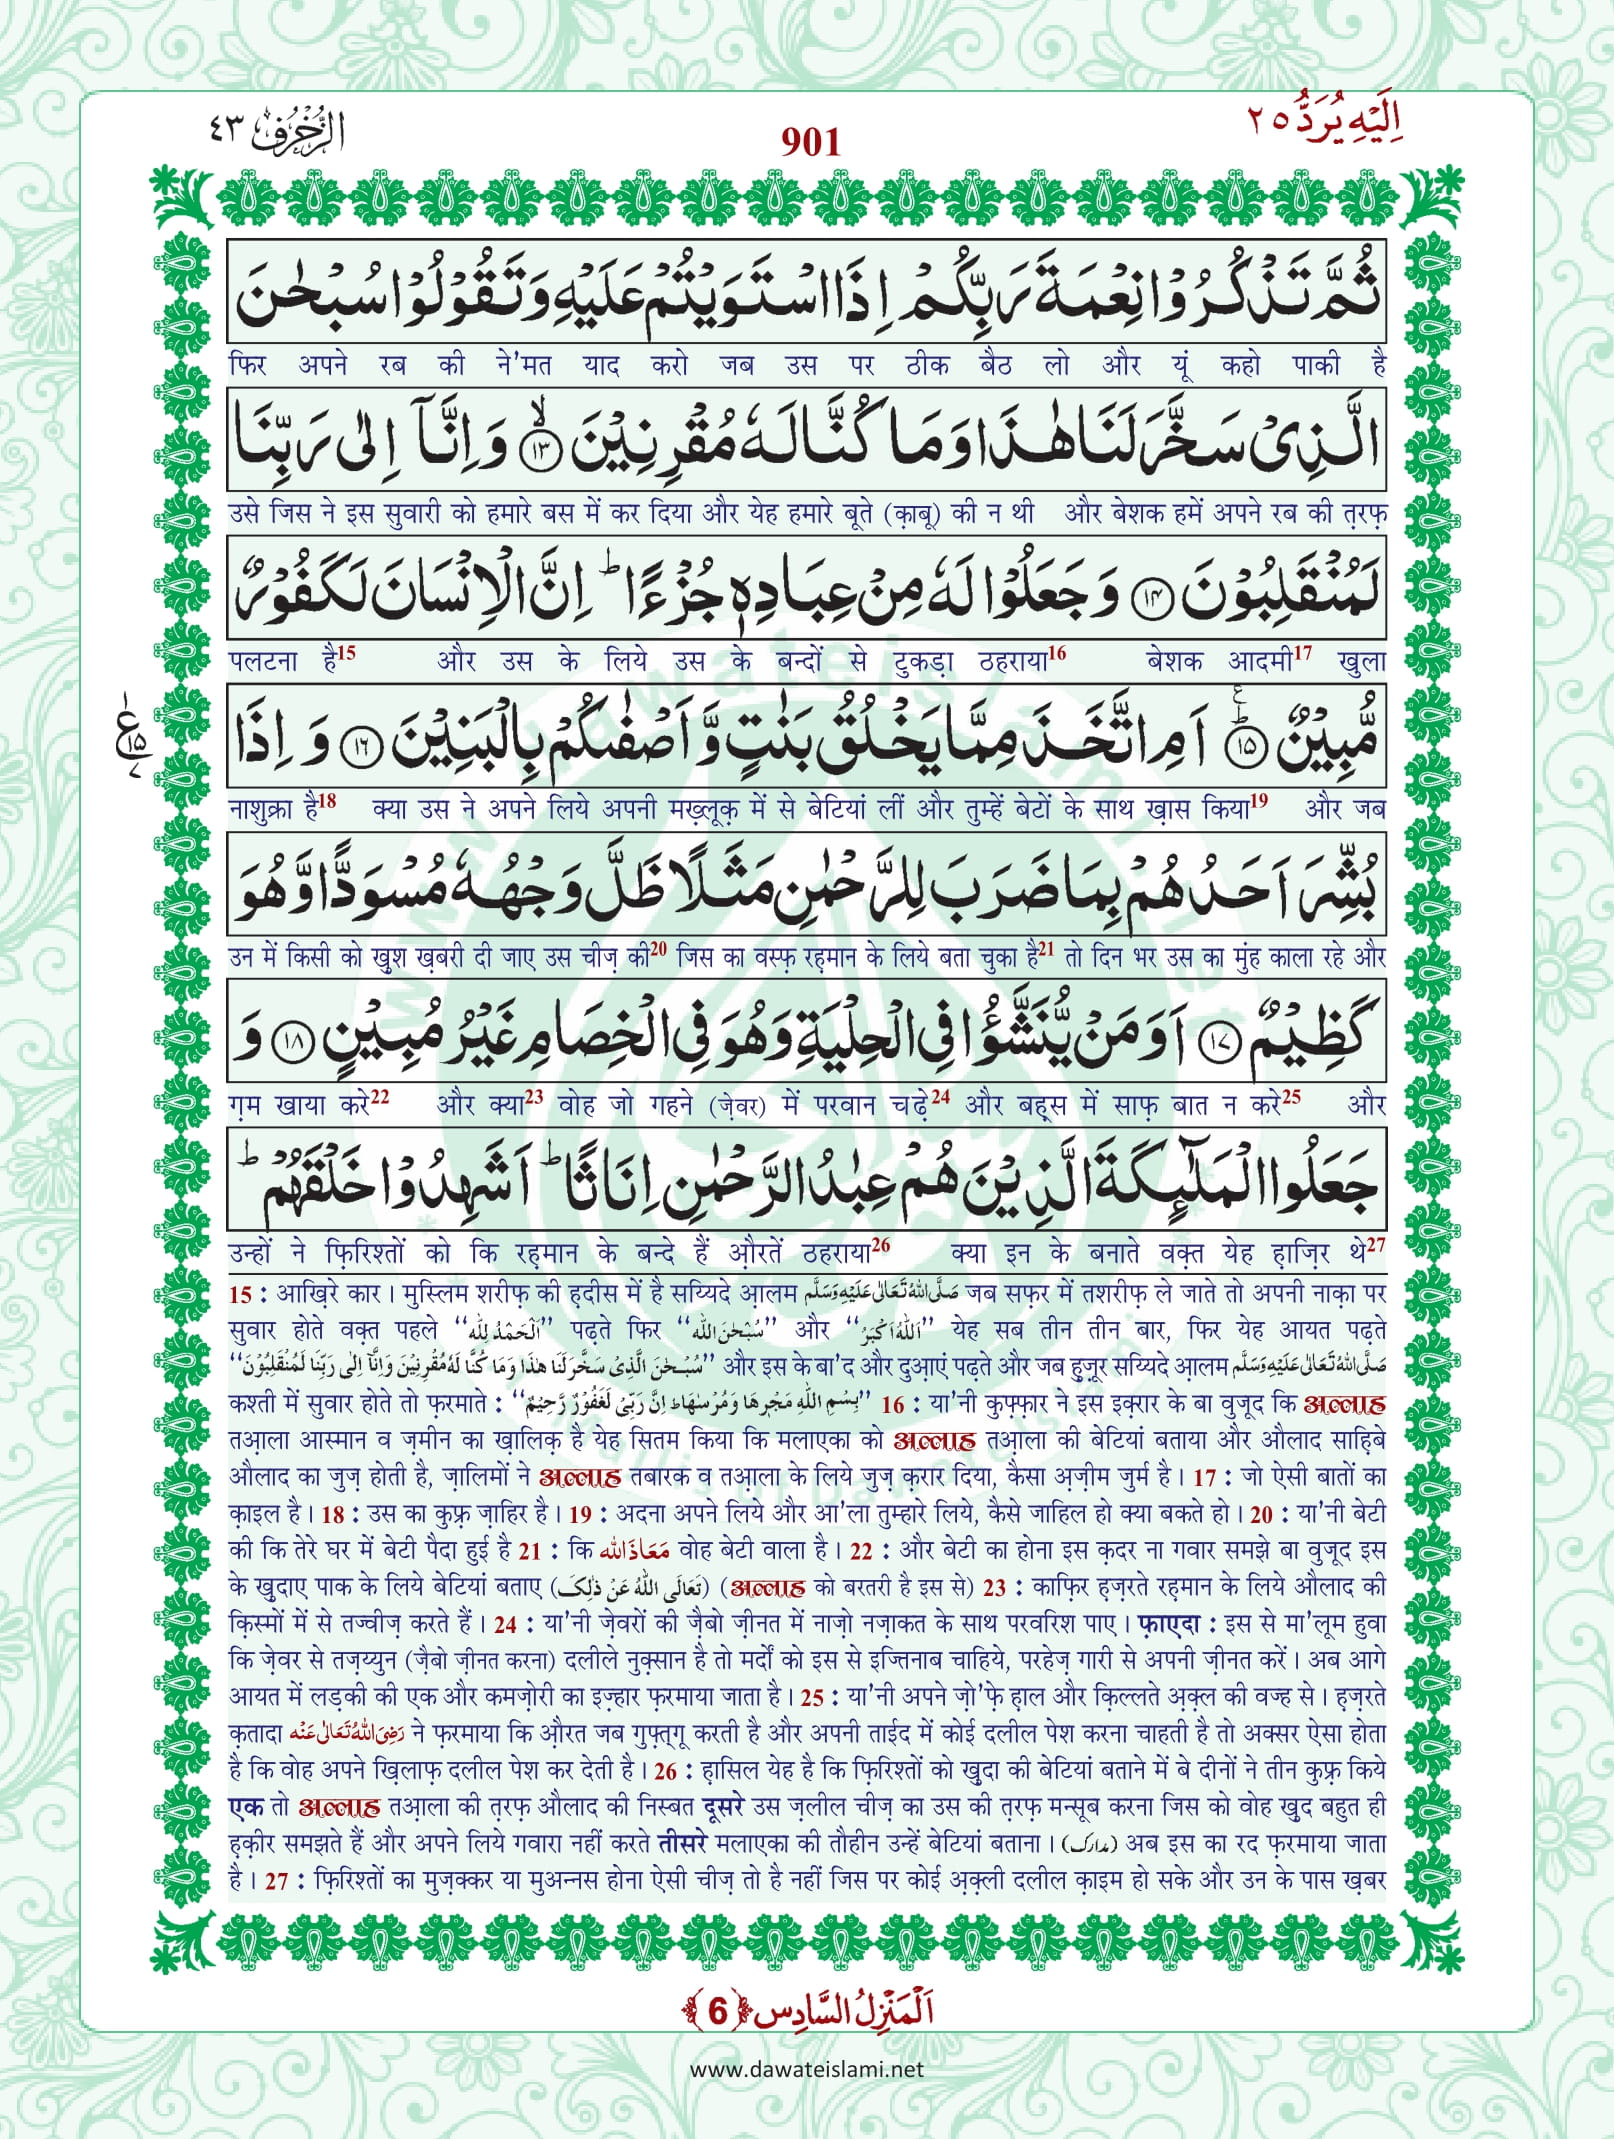 اِلَیْهِ یُرَدُّ ٢٥
901
الزُّخْرُف ٤٣
ثُمَّ تَذْكُرُوْا نِعْمَةَ رَبِّكُمْ اِذَا اسْتَوَیْتُمْ عَلَیْهِ وَ تَقُوْلُوْا سُبْحٰنَ
फिर अपने रब की ने'मत याद करो जब उस पर ठीक बैठ लो और यूं कहो पाकी है
الَّذِیْ سَخَّرَ لَنَا هٰذَا وَ مَا كُنَّا لَهٗ مُقْرِنِیْنَۙ۝۱۳ وَ اِنَّاۤ اِلٰى رَبِّنَا
उसे जिस ने इस सुवारी को हमारे बस में कर दिया और येह हमारे बूते (क़ाबू) की न थी और बेशक हमें अपने रब की त़रफ़
لَمُنْقَلِبُوْنَ۝۱۴ وَ جَعَلُوْا لَهٗ مِنْ عِبَادِهٖ جُزْءًاؕ اِنَّ الْاِنْسَانَ لَكَفُوْرٌ
पलटना है15 और उस के लिये उस के बन्दों से टुकड़ा ठहराया16 बेशक आदमी17 खुला
مُّبِیْنٌؕ۠۝۱۵ اَمِ اتَّخَذَ مِمَّا یَخْلُقُ بَنٰتٍ وَّ اَصْفٰىكُمْ بِالْبَنِیْنَ۝۱۶ وَ اِذَا
ع ١٥ ٧
नाशुक्रा है18 क्या उस ने अपने लिये अपनी मख़्लूक़ में से बेटियां लीं और तुम्हें बेटों के साथ ख़ास किया19 और जब
بُشِّرَ اَحَدُهُمْ بِمَا ضَرَبَ لِلرَّحْمٰنِ مَثَلًا ظَلَّ وَجْهُهٗ مُسْوَدًّا وَّ هُوَ
उन में किसी को खुश ख़बरी दी जाए उस चीज़ की20 जिस का वस्फ़ रह़मान के लिये बता चुका है21 तो दिन भर उस का मुंह काला रहे और
كَظِیْمٌ۝۱۷ اَوَ مَنْ یُّنَشَّؤُا فِی الْحِلْیَةِ وَ هُوَ فِی الْخِصَامِ غَیْرُ مُبِیْنٍ۝۱۸ وَ
ग़म खाया करे22 और क्या23 वोह जो गहने (ज़ेवर) में परवान चढ़े24 और बह़्स में साफ़ बात न करे25 और
جَعَلُوا الْمَلٰٓىٕكَةَ الَّذِیْنَ هُمْ عِبٰدُ الرَّحْمٰنِ اِنَاثًاؕ اَشَهِدُوْا خَلْقَهُمْؕ
उन्हों ने फ़िरिश्तों को कि रह़मान के बन्दे हैं औ़रतें ठहराया26 क्या इन के बनाते वक़्त येह ह़ाज़िर थे27
15 : आख़िरे कार। मुस्लिम शरीफ़ की ह़दीस में है सय्यिदे आ़लम صَلَّى اللهُ تَعَالٰى عَلَیْهِ وَسَلَّم जब सफ़र में तशरीफ़ ले जाते तो अपनी नाक़ा पर
सुवार होते वक़्त पहले ‘‘اَلْحَمْدُ لِلّٰه’’ पढ़ते फिर ‘‘سُبْحٰنَ الله’’ और ‘‘اَللهُ اَكْبَرُ’’ येह सब तीन तीन बार, फिर येह आयत पढ़ते
‘‘سُبْحٰنَ الَّذِیْ سَخَّرَ لَنَا هٰذَا وَمَا كُنَّا لَهٗ مُقْرِنِیْنَ وَاِنَّاۤ اِلٰى رَبِّنَا لَمُنْقَلِبُوْنَ’’ और इस के बा'द और दुआ़एं पढ़ते और जब हुज़ूर सय्यिदे आ़लम صَلَّى اللهُ تَعَالٰى عَلَیْهِ وَسَلَّم
कश्ती में सुवार होते तो फ़रमाते : ‘‘بِسْمِ اللهِ مَجْرٖىهَا وَمُرْسٰىهَاؕ اِنَّ رَبِّیْ لَغَفُوْرٌ رَّحِیْمٌ’’ 16 : या'नी कुफ़्फ़ार ने इस इक़्रार के बा वुजूद कि अल्लाह
तआ़ला आस्मान व ज़मीन का ख़ालिक़ है येह सितम किया कि मलाएका को अल्लाह तआ़ला की बेटियां बताया और औलाद साह़िबे
औलाद का जुज़ होती है, ज़ालिमों ने अल्लाह तबारक व तआ़ला के लिये जुज़ क़रार दिया, कैसा अ़ज़ीम जुर्म है। 17 : जो ऐसी बातों का
क़ाइल है। 18 : उस का कुफ़्र ज़ाहिर है। 19 : अदना अपने लिये और आ'ला तुम्हारे लिये, कैसे जाहिल हो क्या बकते हो। 20 : या'नी बेटी
की कि तेरे घर में बेटी पैदा हुई है 21 : कि مَعَاذَ الله वोह बेटी वाला है। 22 : और बेटी का होना इस क़दर ना गवार समझे बा वुजूद इस
के खुदाए पाक के लिये बेटियां बताए (تَعَالَی اللهُ عَنْ ذٰلِکَ) (अल्लाह को बरतरी है इस से) 23 : काफ़िर ह़ज़रते रह़मान के लिये औलाद की
क़िस्मों में से तज्वीज़ करते हैं। 24 : या'नी ज़ेवरों की ज़ैबो ज़ीनत में नाज़ो नज़ाकत के साथ परवरिश पाए। फ़ाएदा : इस से मा'लूम हुवा
कि ज़ेवर से तज़य्युन (ज़ैबो ज़ीनत करना) दलीले नुक़्सान है तो मर्दों को इस से इज्तिनाब चाहिये, परहेज़ गारी से अपनी ज़ीनत करें। अब आगे
आयत में लड़की की एक और कमज़ोरी का इज़्हार फ़रमाया जाता है। 25 : या'नी अपने ज़ो'फ़े ह़ाल और क़िल्लते अ़क़्ल की वज्ह से। ह़ज़रते
क़तादा رَضِیَ اللهُ تَعَالٰی عَنْه ने फ़रमाया कि औ़रत जब गुफ़्त्गू करती है और अपनी ताईद में कोई दलील पेश करना चाहती है तो अक्सर ऐसा होता
है कि वोह अपने ख़िलाफ़ दलील पेश कर देती है। 26 : ह़ासिल येह है कि फ़िरिश्तों को खुदा की बेटियां बताने में बे दीनों ने तीन कुफ़्र किये
एक तो अल्लाह तआ़ला की त़रफ़ औलाद की निस्बत दूसरे उस ज़लील चीज़ का उस की त़रफ़ मन्सूब करना जिस को वोह खुद बहुत ही
ह़क़ीर समझते हैं और अपने लिये गवारा नहीं करते तीसरे मलाएका की तौहीन उन्हें बेटियां बताना। (مدارک) अब इस का रद फ़रमाया जाता
है। 27 : फ़िरिश्तों का मुज़क्कर या मुअन्नस होना ऐसी चीज़ तो है नहीं जिस पर कोई अ़क़्ली दलील क़ाइम हो सके और उन के पास ख़बर
اَلْمَنْزِلُ السَّادِس ﴿6﴾
www.dawateislami.net